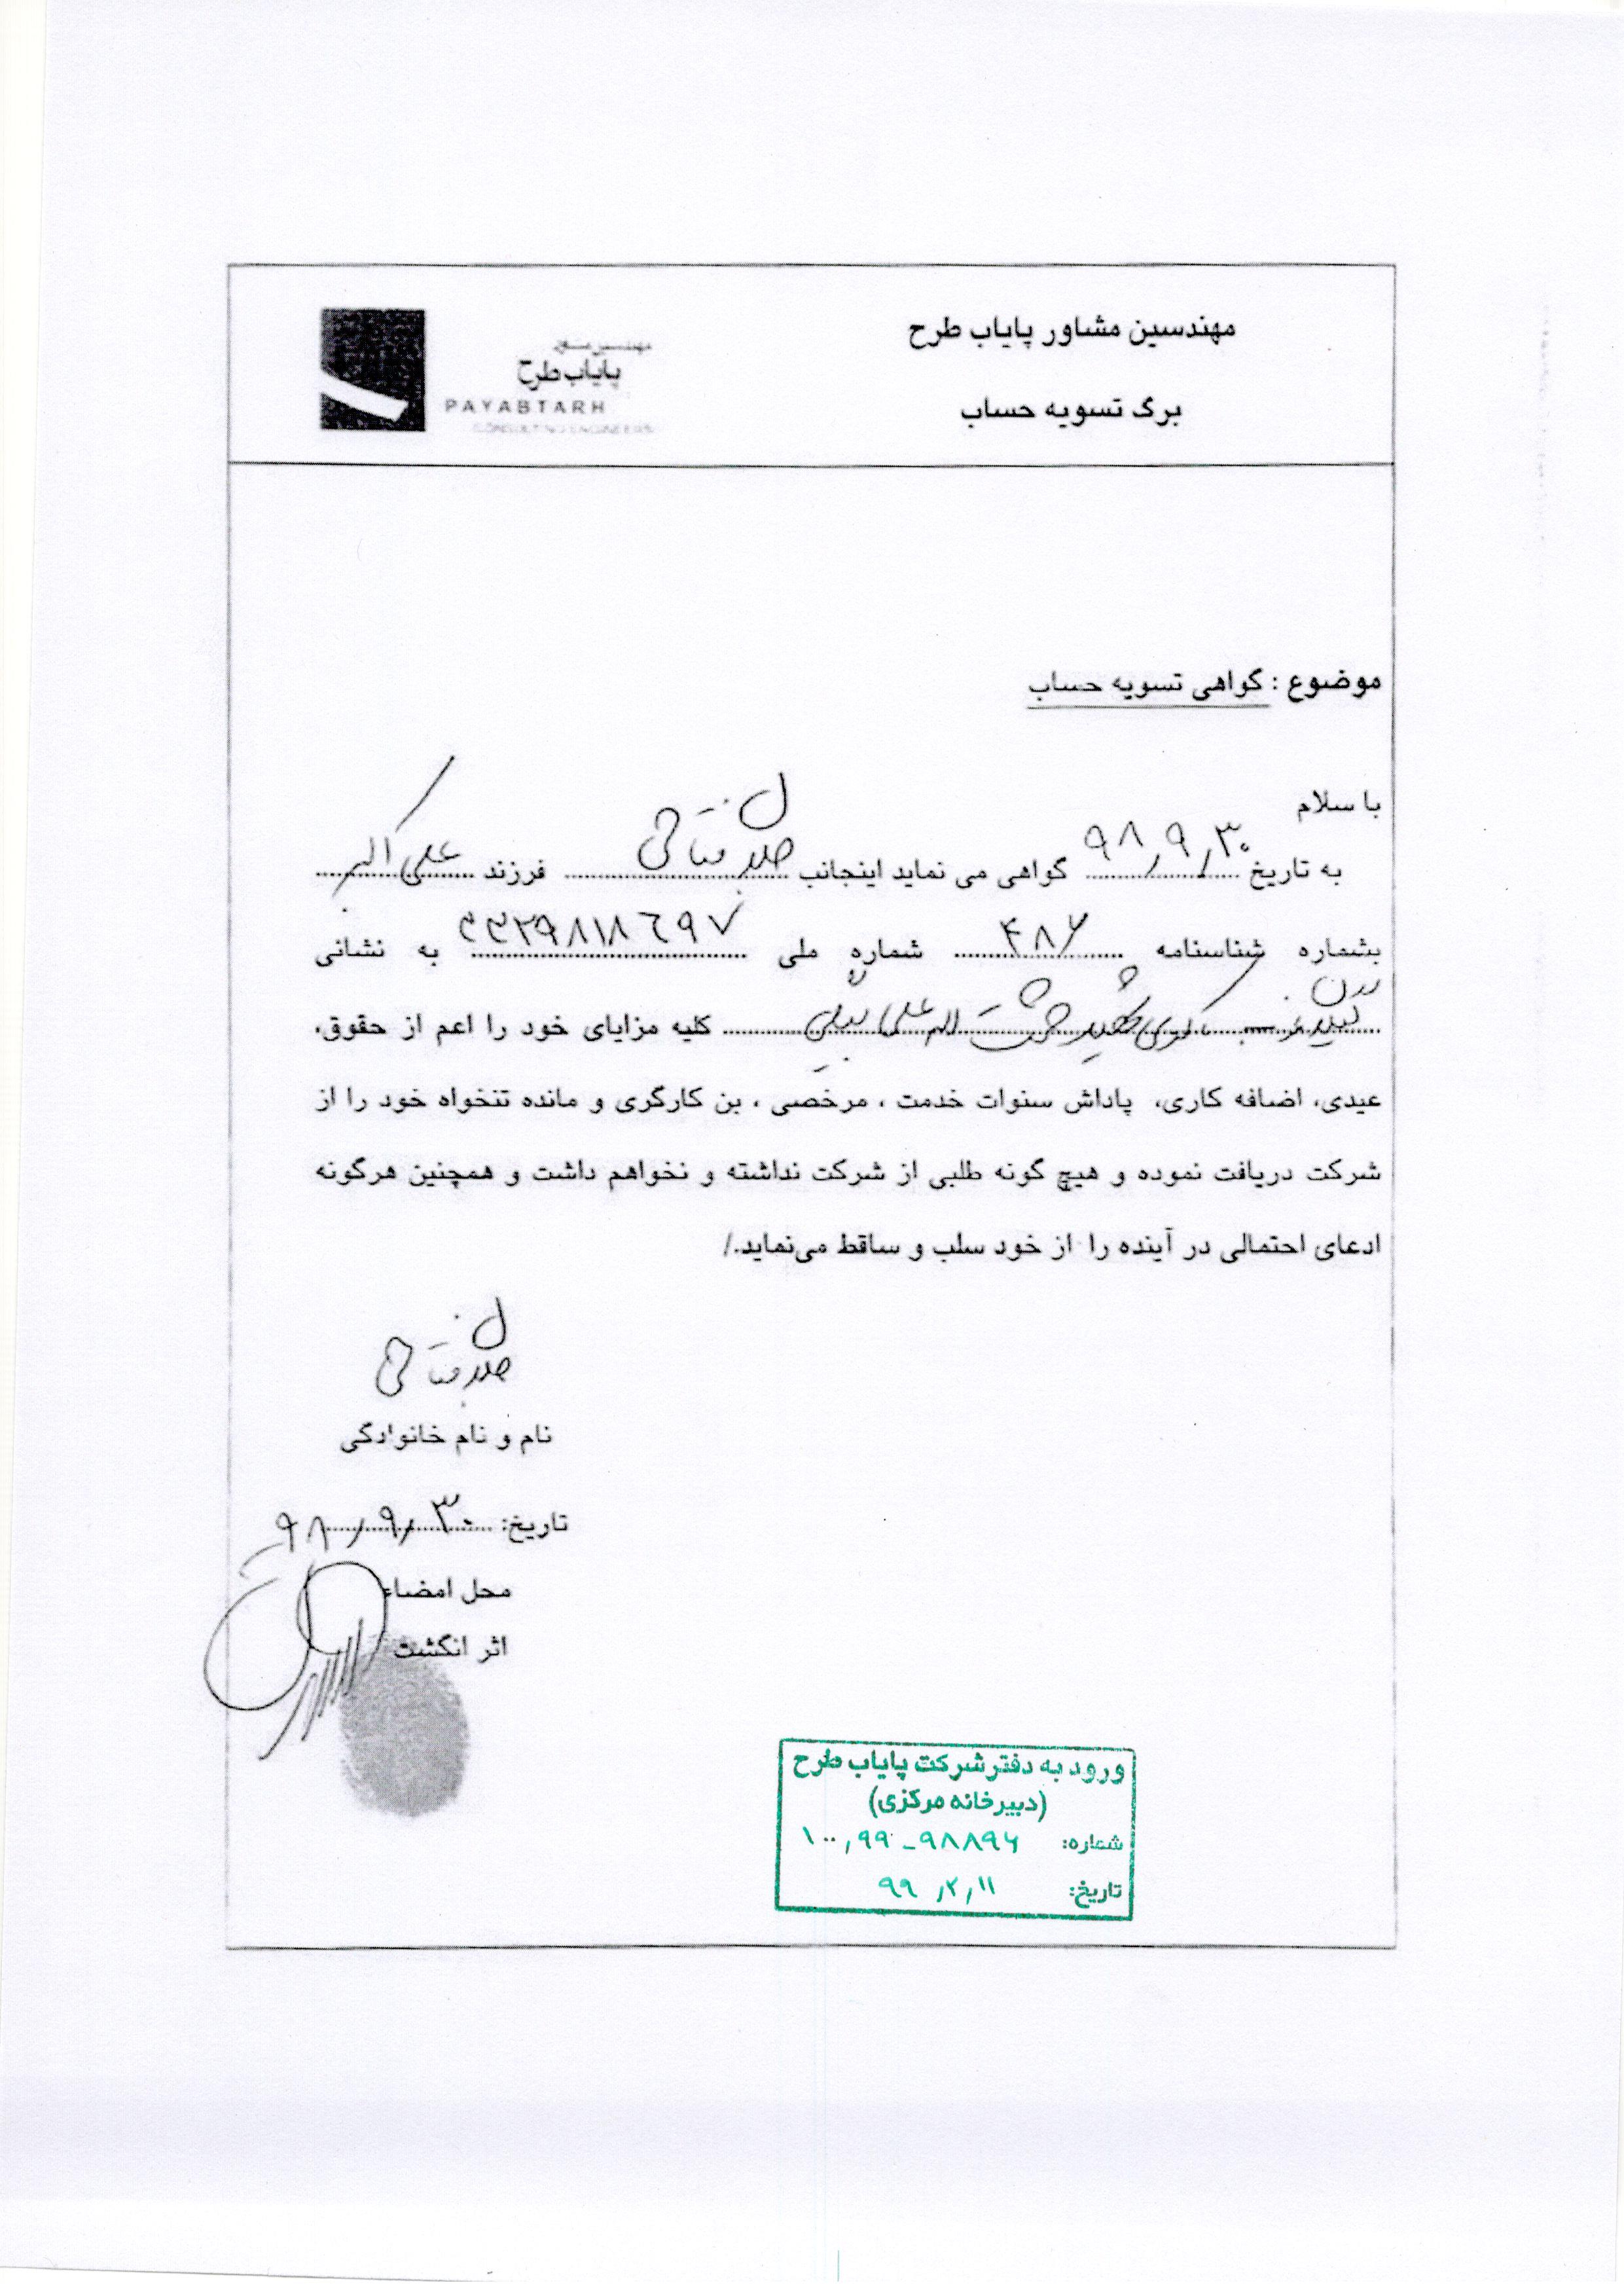 مهندسین مشاور پایاب طرح
برگ تسویه حساب
پایاب طرح
PAYABTARH
CONSULTING ENGINEERS
موضوع : گواهی تسویه حساب
با سلام
به تاریخ ۹۸/۹/۳۰ گواهی می نماید اینجانب فرزند علی اکبر
بشماره شناسنامه ۴۸۶ شماره ملی به نشانی
کوی شهید کلیه مزایای خود را اعم از حقوق،
عیدی، اضافه کاری، پاداش سنوات خدمت ، مرخصی ، بن کارگری و مانده تنخواه خود را از
شرکت دریافت نموده و هیچ گونه طلبی از شرکت نداشته و نخواهم داشت و همچنین هرگونه
ادعای احتمالی در آینده را از خود سلب و ساقط می‌نماید./
نام و نام خانوادگی
تاریخ: ۹۸/۹/۳۰
محل امضاء
اثر انگشت
ورود به دفتر شرکت پایاب طرح
(دبیرخانه مرکزی)
شماره: ۱۰۰/۹۹-۹۸۸۹۶
تاریخ: ۹۹/۲/۱۱